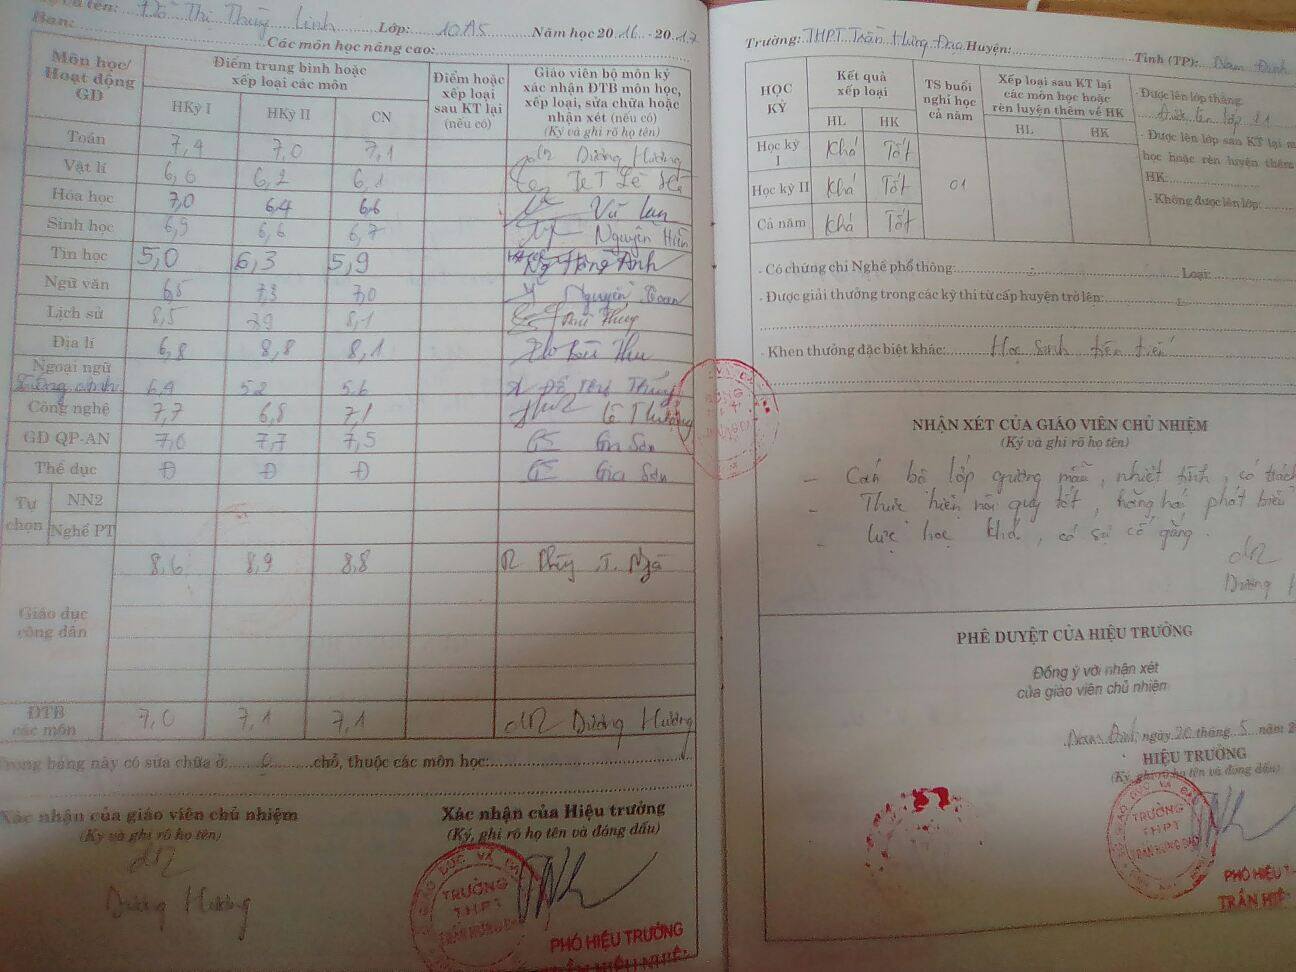 tên: Đỗ Thị Thùy Linh Lớp: 10A5 Năm học 2016 - 2017
Ban: Các môn học nâng cao:
Môn học/ Hoạt động GD
Điểm trung bình hoặc xếp loại các môn
HKỳ I HKỳ II CN
Điểm hoặc xếp loại sau KT lại (nếu có)
Giáo viên bộ môn ký xác nhận ĐTB môn học, xếp loại, sửa chữa hoặc nhận xét (nếu có)
(Ký và ghi rõ họ tên)
Toán 7,4 7,0 7,1 Dương Hương
Vật lí 6,6 6,2 6,1
Hóa học 7,0 6,4 6,6 Vũ Lan
Sinh học 6,9 6,6 6,7 Nguyễn Hiền
Tin học 5,0 6,3 5,9 Ng Hồng Anh
Ngữ văn 6,5 7,3 7,0 Nguyễn
Lịch sử 8,5 7,9 8,1
Địa lí 6,8 8,8 8,1
Ngoại ngữ
Tiếng Anh 6,4 5,2 5,6 Đỗ
Công nghệ 7,7 6,8 7,1 Lê
GD QP-AN 7,0 7,7 7,5 Gia Sơn
Thể dục Đ Đ Đ Gia Sơn
Tự chọn NN2
Nghề PT
Giáo dục công dân 8,6 8,9 8,8
ĐTB các môn 7,0 7,1 7,1 Dương Hương
Trong bảng này có sửa chữa ở: 0 chỗ, thuộc các môn học:
Xác nhận của giáo viên chủ nhiệm
(Ký và ghi rõ họ tên)
Dương Hương
Xác nhận của Hiệu trưởng
(Ký, ghi rõ họ tên và đóng dấu)
TRƯỜNG
THPT
TRẦN HƯNG ĐẠO
PHÓ HIỆU TRƯỞNG
Trường: THPT Trần Hưng Đạo Huyện: Tỉnh (TP): Nam Định
HỌC KỲ
Kết quả xếp loại
HL HK
TS buổi nghỉ học cả năm
Xếp loại sau KT lại các môn học hoặc rèn luyện thêm về HK
HL HK
Học kỳ I Khá Tốt
Học kỳ II Khá Tốt
Cả năm Khá Tốt
01
- Được lên lớp thẳng
Được lên lớp 11
- Được lên lớp sau KT lại m
học hoặc rèn luyện thêm
HK:
- Không được lên lớp:
- Có chứng chỉ Nghề phổ thông: Loại:
- Được giải thưởng trong các kỳ thi từ cấp huyện trở lên:
- Khen thưởng đặc biệt khác: Học sinh tiên tiến
NHẬN XÉT CỦA GIÁO VIÊN CHỦ NHIỆM
(Ký và ghi rõ họ tên)
- Cán bộ lớp gương mẫu, nhiệt tình, có trách
- Thực hiện nội quy tốt, hăng hái phát biểu
- Lực học khá, có sự cố gắng.
Dương H
PHÊ DUYỆT CỦA HIỆU TRƯỞNG
Đồng ý với nhận xét
của giáo viên chủ nhiệm
Nam Định, ngày 20 tháng 5 năm 2
HIỆU TRƯỞNG
(Ký, ghi rõ họ tên và đóng dấu)
TRƯỜNG
THPT
TRẦN HƯNG ĐẠO
PHÓ HIỆU T
TRẦN HIỆ